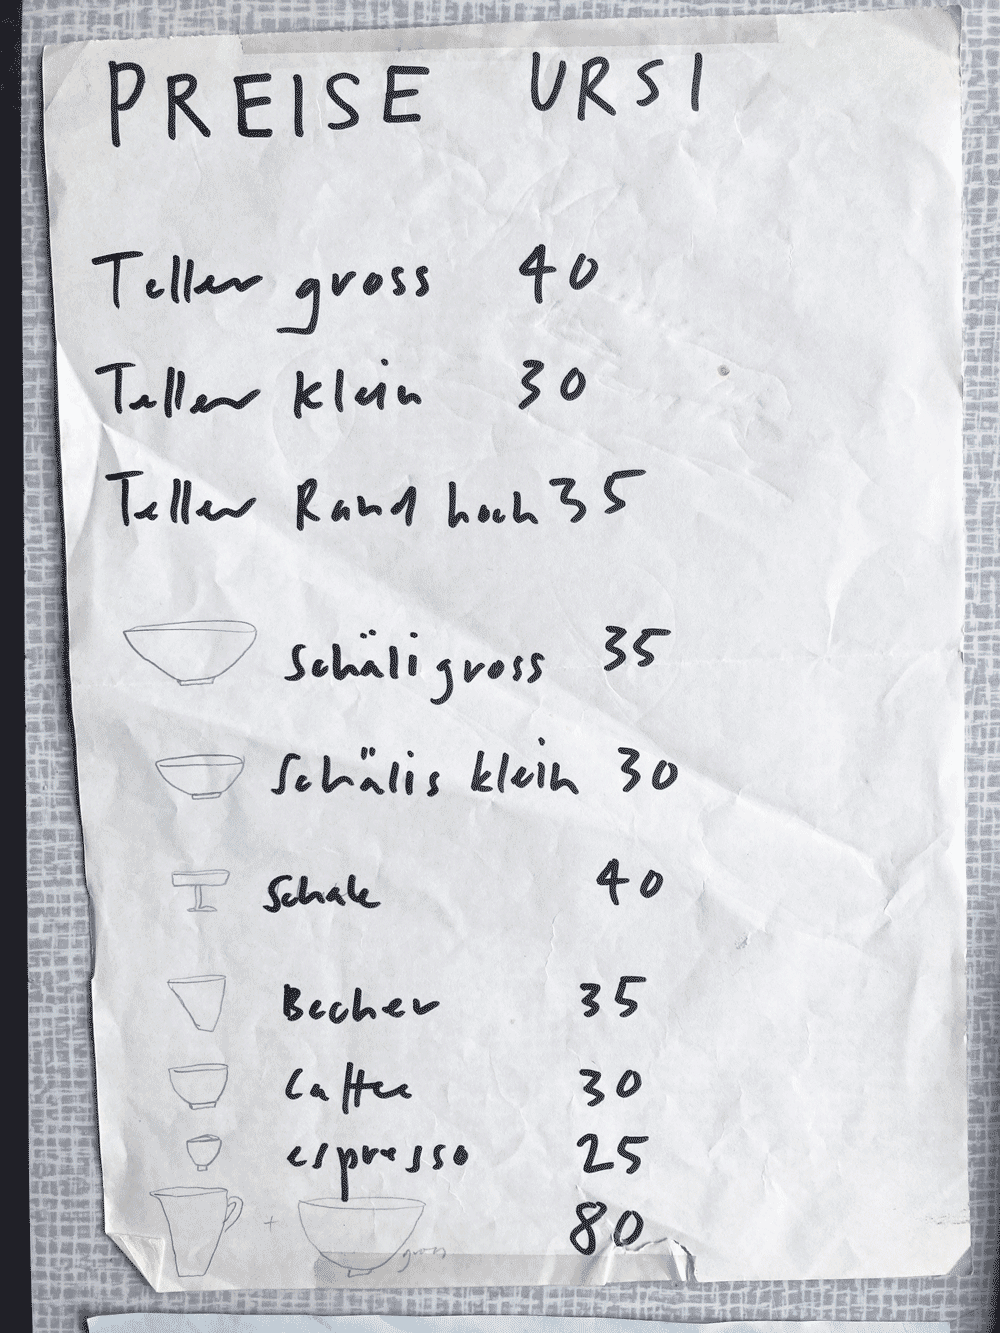 PREISE URSI
Teller gross 40
Teller klein 30
Teller Rand hoch 35
Schäli gross 35
Schälis klein 30
Schale 40
Becher 35
Caffee 30
espresso 25
+ gross 80